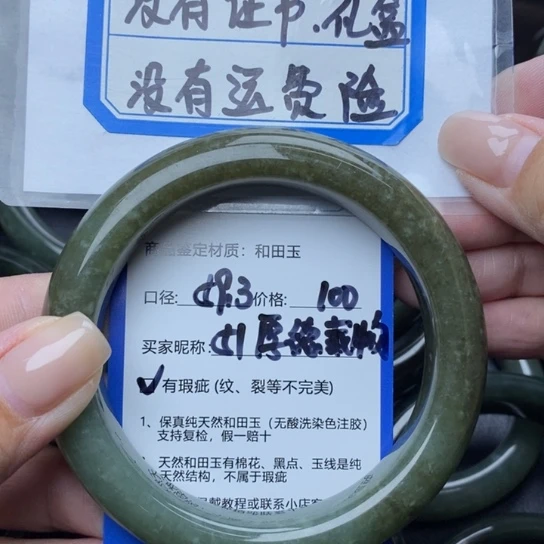 没有证书.礼盒
没有运费险
商品鉴定材质：和田玉
口径：49.3价格：100
买家昵称：41厚德载物
✓有瑕疵 (纹、裂等不完美)
1、保真纯天然和田玉（无酸洗染色注胶）
支持复检，假一赔十
、天然和田玉有棉花、黑点、玉线是纯
天然结构，不属于瑕疵
戴教程或联系小店客